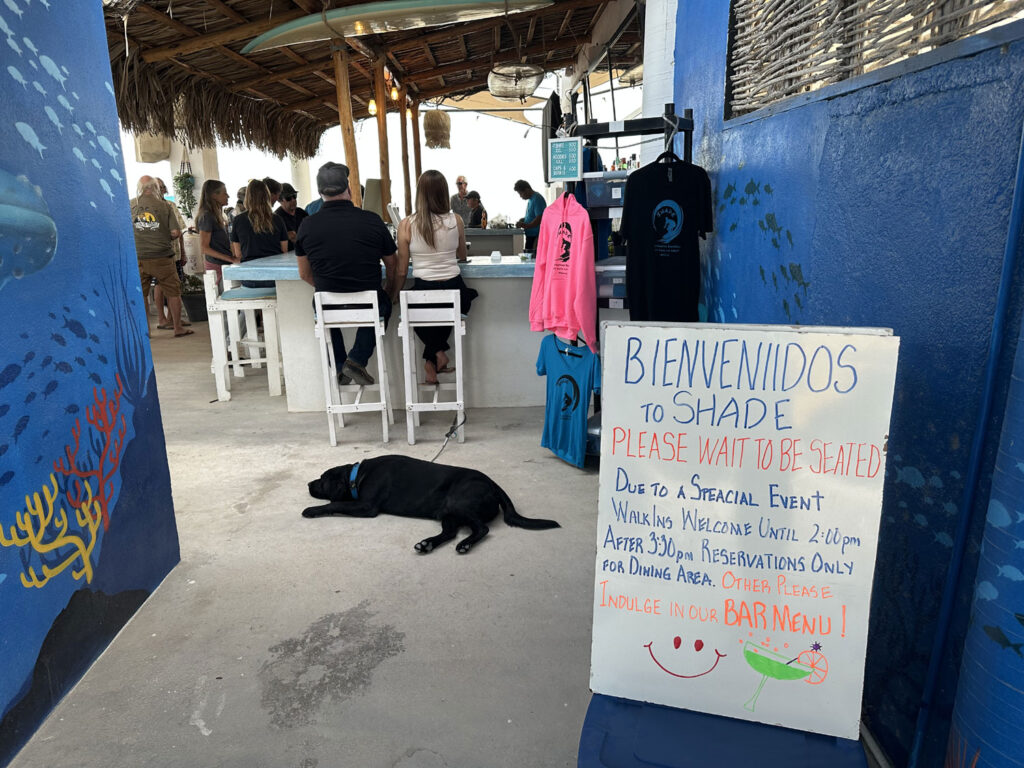 BIENVENIIDOS
TO SHADE
PLEASE WAIT TO BE SEATED
DUE TO A SPEACIAL EVENT
WALKINS WELCOME UNTIL 2:00pm
AFTER 3:30pm RESERVATIONS ONLY
FOR DINING AREA. OTHER PLEASE
INDULGE IN OUR BAR MENU!
SHADE